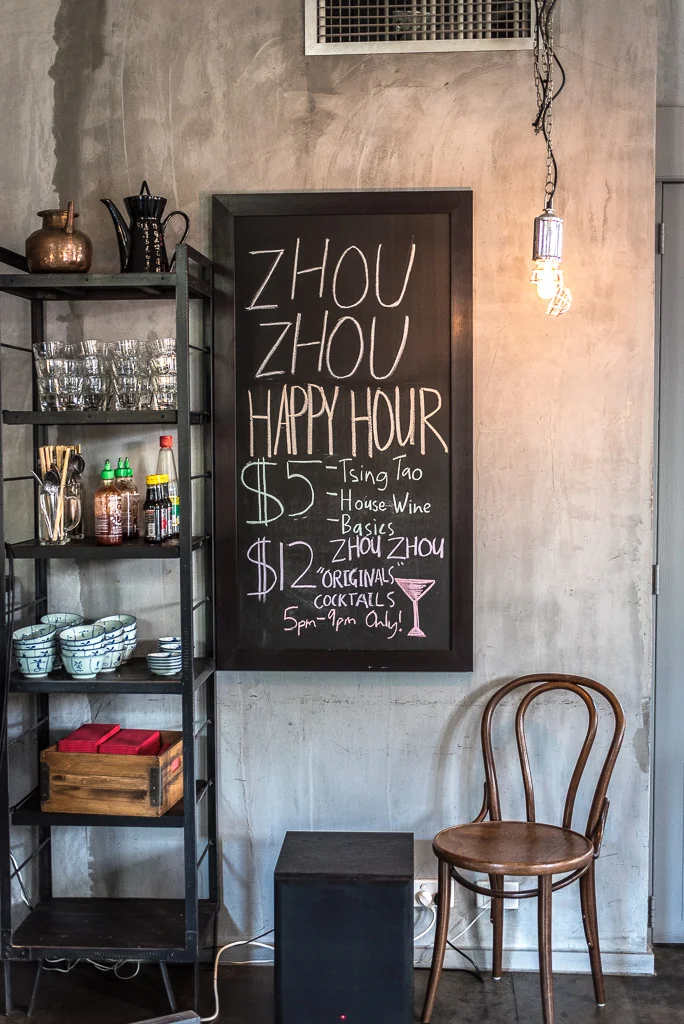 ZHOU
ZHOU
HAPPY HOUR
$5 -Tsing Tao
-House Wine
-Basics
$12 ZHOU ZHOU
"ORIGINALS"
COCKTAILS
5pm-9pm Only!